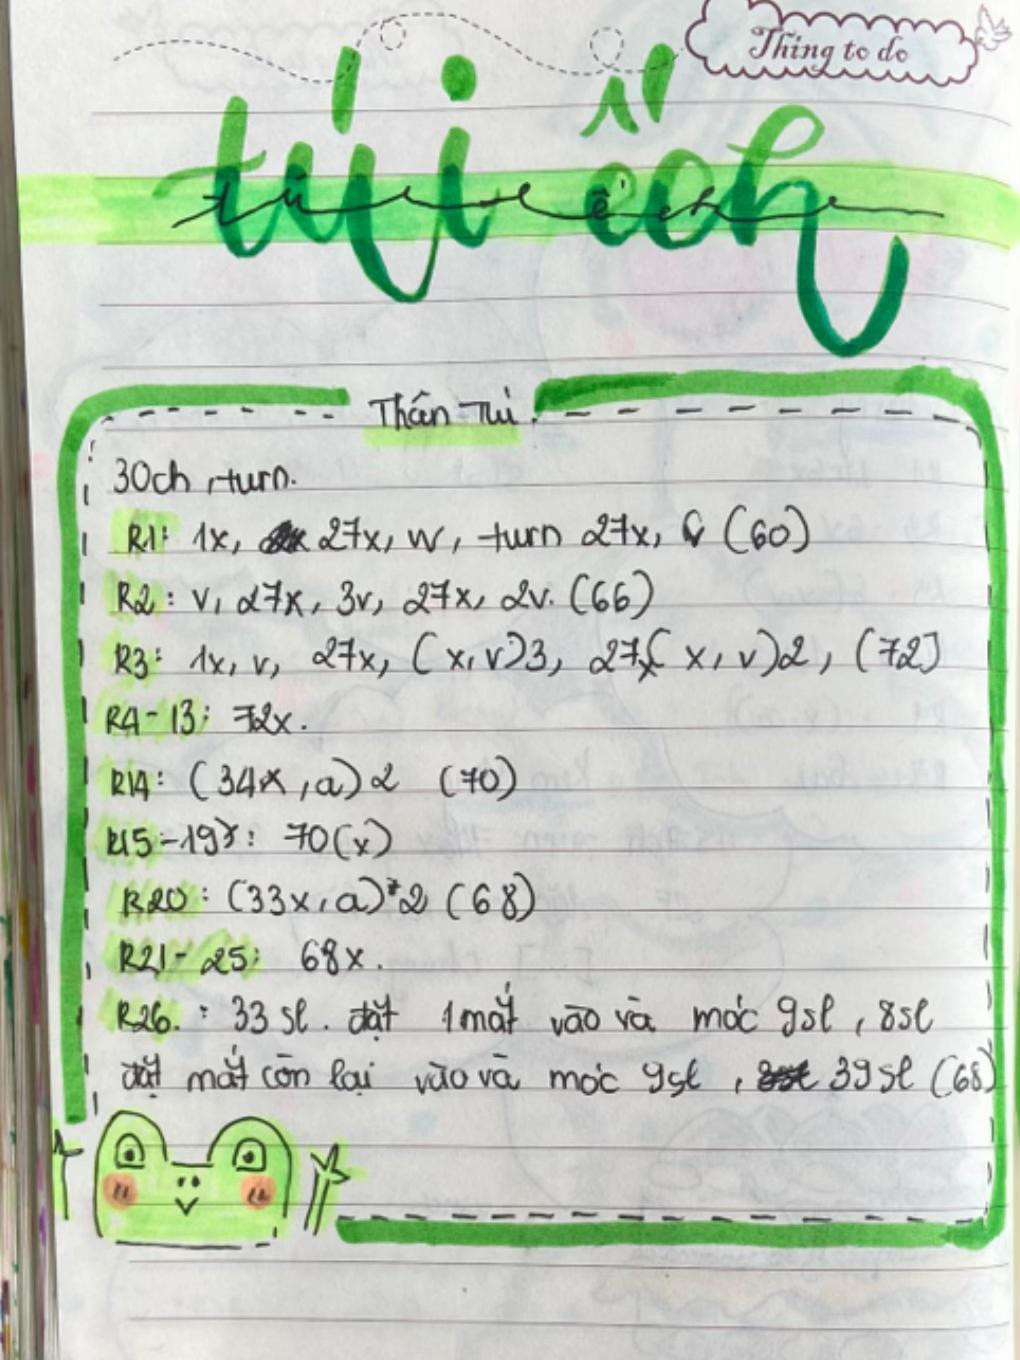 Thing to do
túi ếch
túi ếch
Thân Túi.
30ch, turn.
R1: 1x, 27x, w, turn 27x, v (60)
R2: v, 27x, 3v, 27x, 2v. (66)
R3: 1x, v, 27x, (x, v)3, 27x(x, v)2, (72)
R4-13: 72x.
R14: (34x, a)2 (70)
R15-19: 70(x)
R20: (33x, a)*2 (68)
R21-25: 68x.
R26.: 33sl. đặt 1 mắt vào và móc 9sl, 8sl
đặt mắt còn lại vào và móc 9sl, 39sl (68)